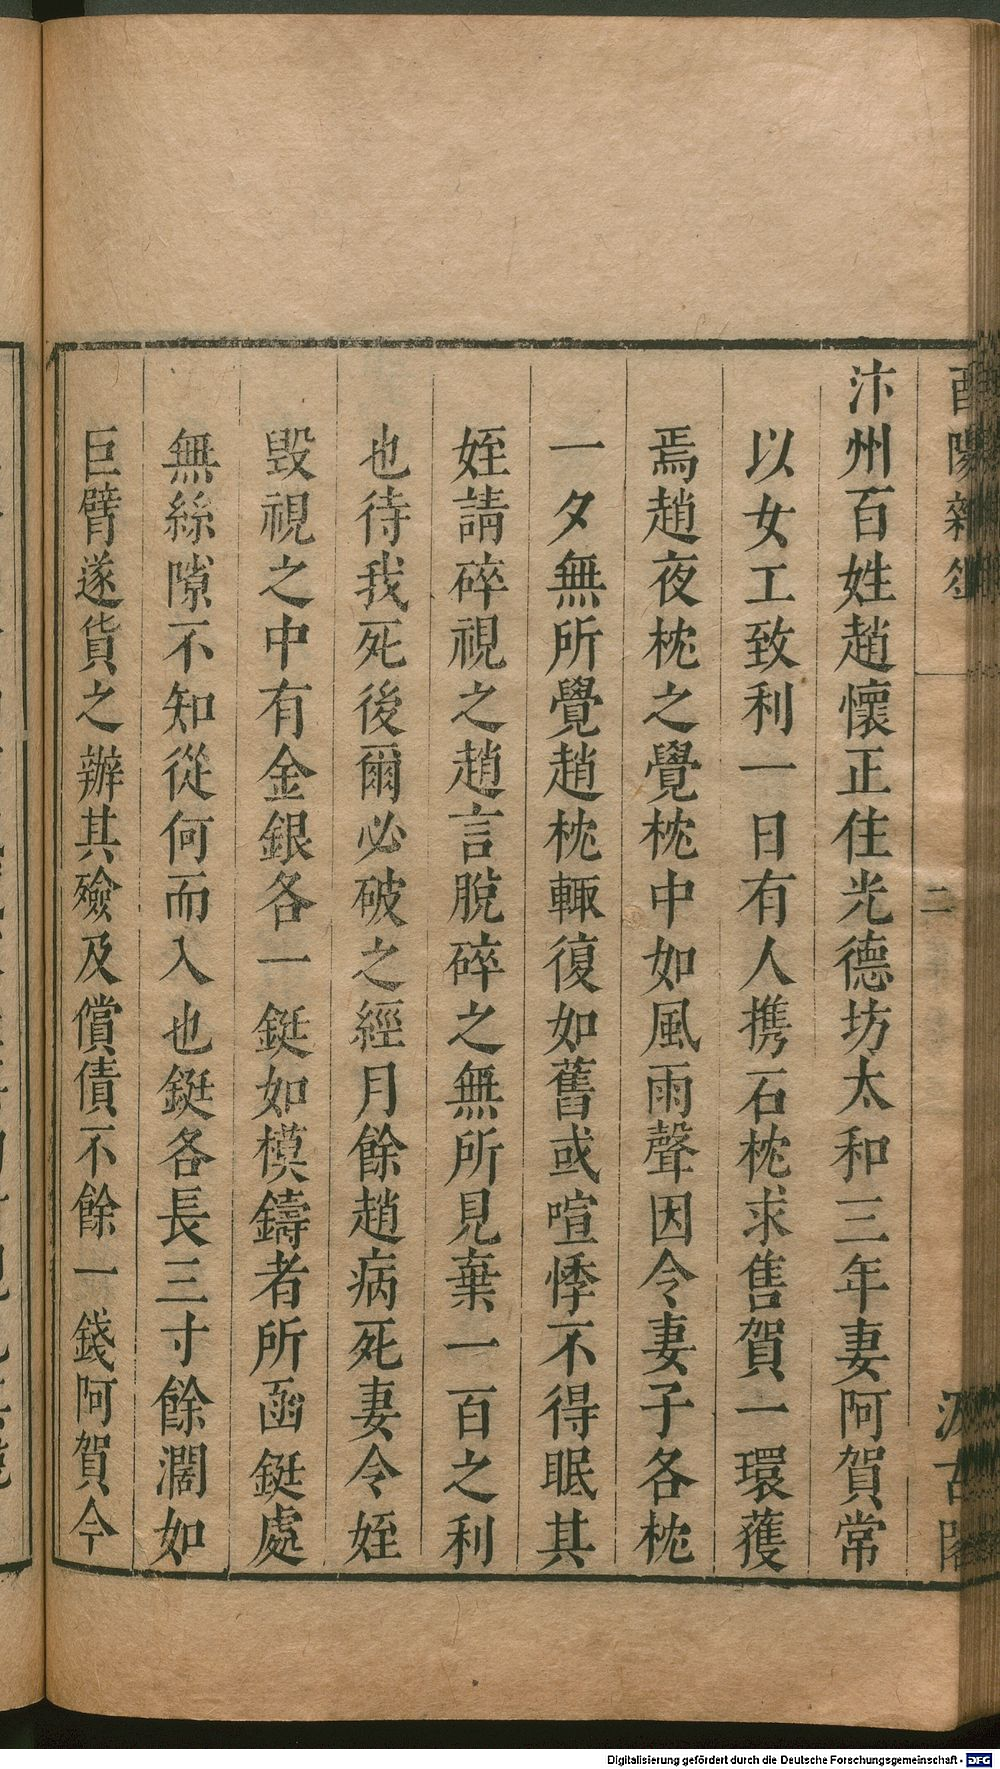 酉陽雜俎
二
汲古閣
汴州百姓趙懷正住光德坊太和三年妻阿賀常
以女工致利一日有人携石枕求售賀一環獲
焉趙夜枕之覺枕中如風雨聲因令妻子各枕
一夕無所覺趙枕輒復如舊或喧悸不得眠其
姪請碎視之趙言脫碎之無所見棄一百之利
也待我死後爾必破之經月餘趙病死妻令姪
毀視之中有金銀各一鋌如模鑄者所函鋌處
無絲隙不知從何而入也鋌各長三寸餘濶如
巨臂遂貨之辦其殮及償債不餘一錢阿賀今
Digitalisierung gefördert durch die Deutsche Forschungsgemeinschaft - DFG